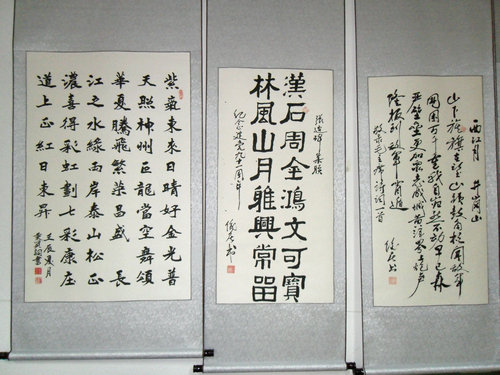 西江月 井岡山
山下旌旗在望山頭鼓角相聞敵軍
圍困万千重我自巋然不动早已森
嚴壁壘更加衆志成城黄洋界上炮声
隆报到敌軍宵遁
敬录毛主席诗词一首
張遷碑集联
漢石周金鴻文可寶
林風山月雅興常留
纪念建党九十周年
紫氣東來日晴好金光普
天照神州巨龍當空舞頌
華夏騰飛繁榮昌盛長
江之水綠兩岸泰山松正
濃喜得彩虹劃七彩康庄
道上正紅日東昇
壬辰夏月